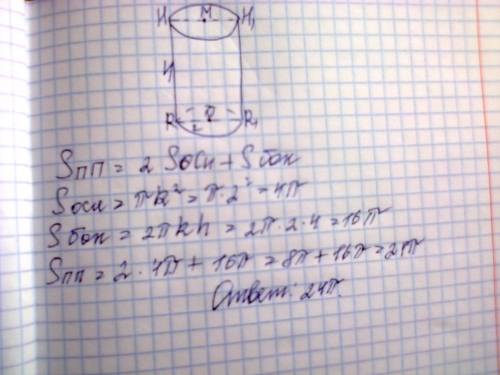 H M H₁
4
R 2 O R₁
Sпп = 2 Sосн + Sбок
Sосн = πR² = π·2² = 4π
Sбок = 2πRh = 2π·2·4 = 16π
Sпп = 2·4π + 16π = 8π + 16π = 24π
Ответ: 24π.